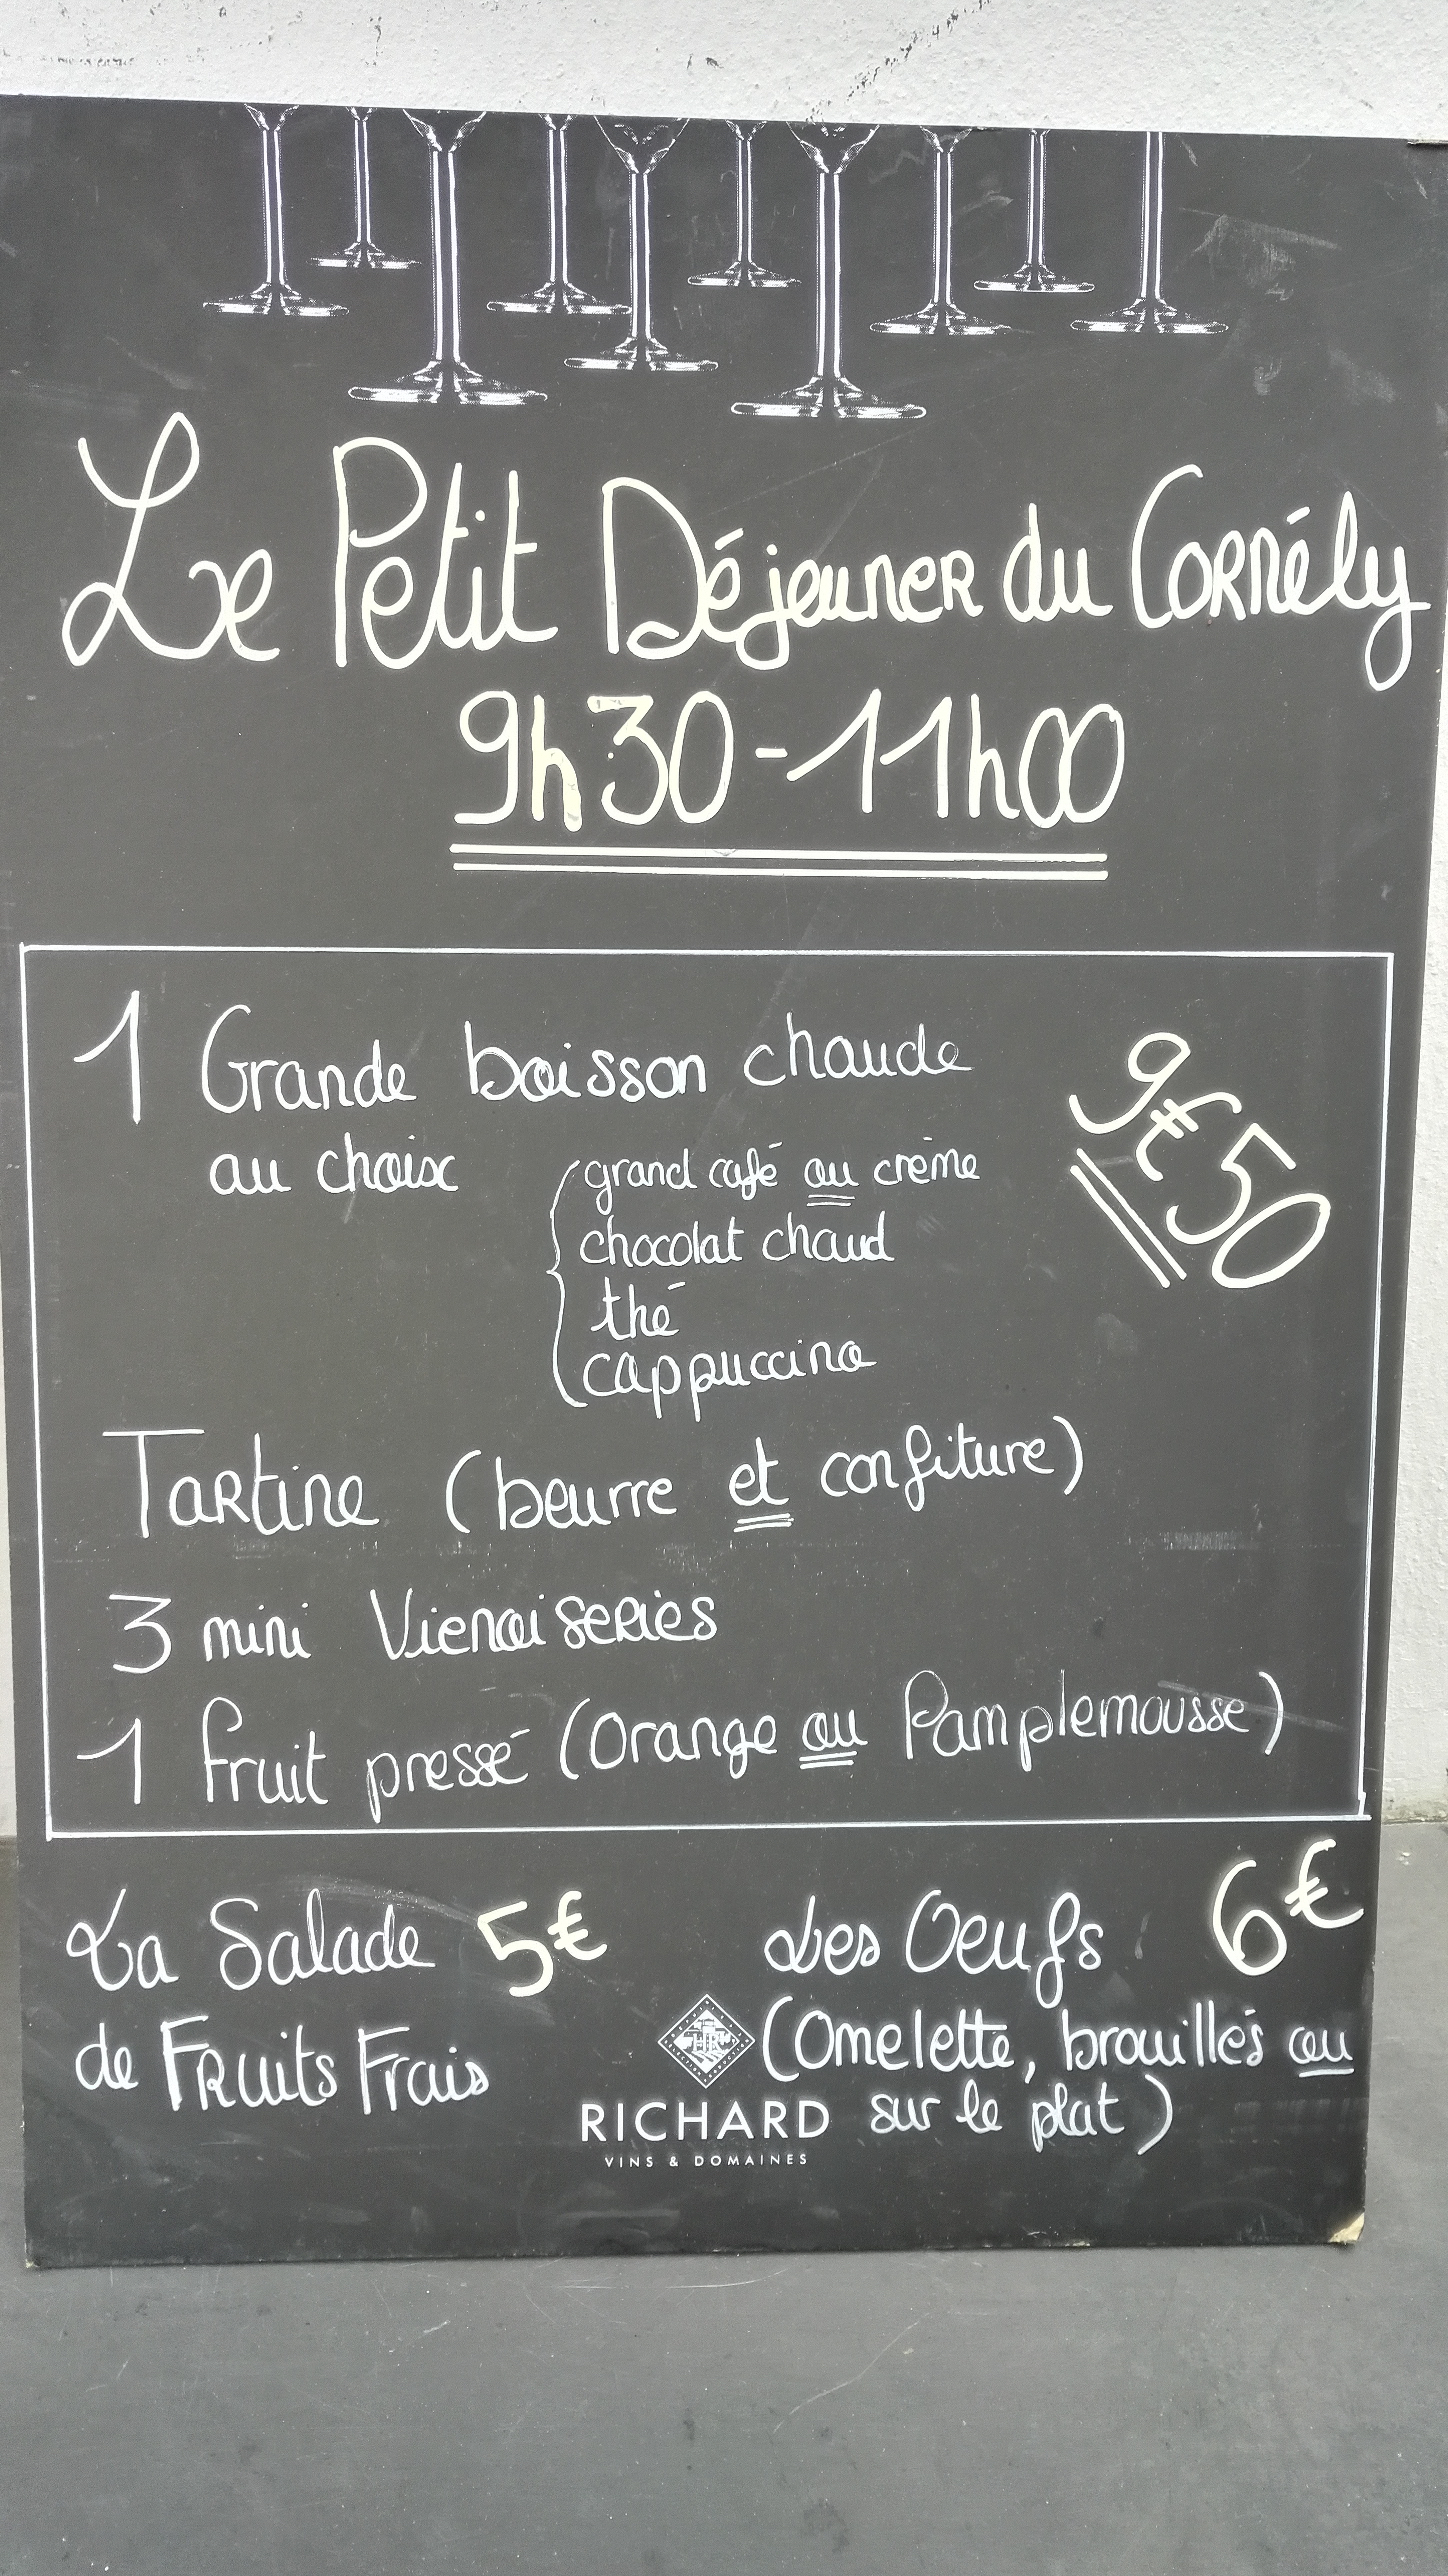 Le Petit Déjeuner du Cornély
9h30-11h00
1 Grande boisson chaude
9€50
au choix
grand café ou crème
chocolat chaud
thé
cappuccino
Tartine (beurre et confiture)
3 mini Vienoiseries
1 fruit pressé (Orange ou Pamplemousse)
La Salade 5€
de Fruits Frais
Les Oeufs 6€
(Omelette, brouillés ou
sur le plat)
HR
RICHARD
VINS & DOMAINES